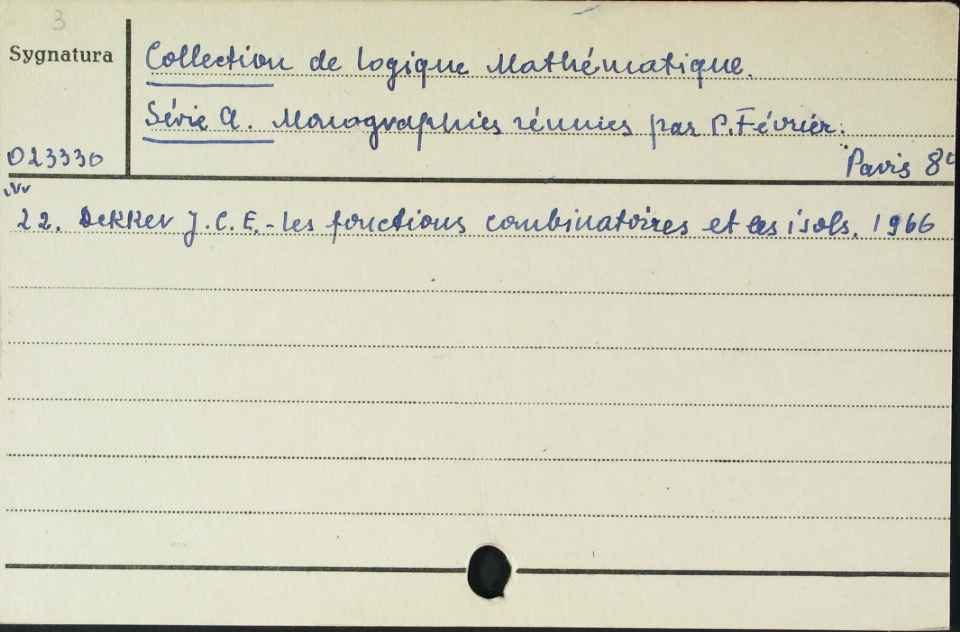 3
Sygnatura
Collection de logique Mathématique.
Série A. Monographies réunies par P. Février.
023330
Paris 8°
22. Dekker J.C.E. - les fonctions combinatoires et les isols. 1966